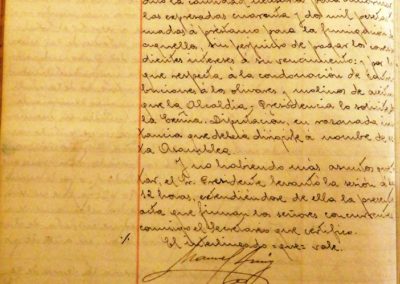 las expresadas cuarenta y dos mil pese
madas á prestamo para la fumigación
aquello, sin perjuicio de pagar los corres
dientes intereses á su vencimiento; y por l
que respecta á la condonación de
á los olivares y molinos de aceite
que la Alcaldia-Presidencia lo solicite
la Excma. Diputación, en razonada ins
tancia que deberá dirigirle á nombre de e
ta Asamblea.
Y no habiendo más asuntos que
tar, el Sr. Presidente levantó la sesión á las
12 horas, extendiendose de ella la presen
acta que firman los señores concurren
conmigo el Secretario que certifico.
El interlineado = que = vale.
Manuel Ruiz